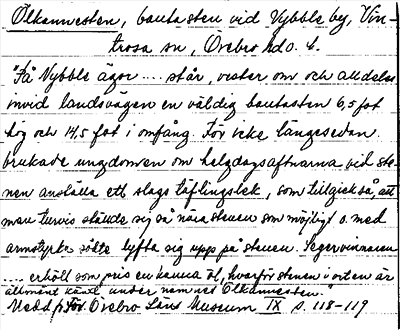 Ölkannesten, bautasten vid Vybble by, Vin-
trosa sn, Örebro hdo. 4.
"På Vybble ägor .... står, vester om och alldeles
invid landsvägen en väldig bautasten 6,5 fot
hög och 14,5 fot i omfång. För icke längesedan
brukade ungdomen om helgdagsaftnarna vid ste-
nen anställa ett slags täflingslek, som tillgick så, att
man turvis ställde sig så nära stenen som möjligt o. med
armstyrka sökte lyfta sig upp på stenen. Segervinnaren
.... erhöll som pris en kanna öl, hvarför stenen i orten är
allmänt känd under namnet Ölkannesten."
Medd. p För. Örebro Läns Museum IX s. 118-119